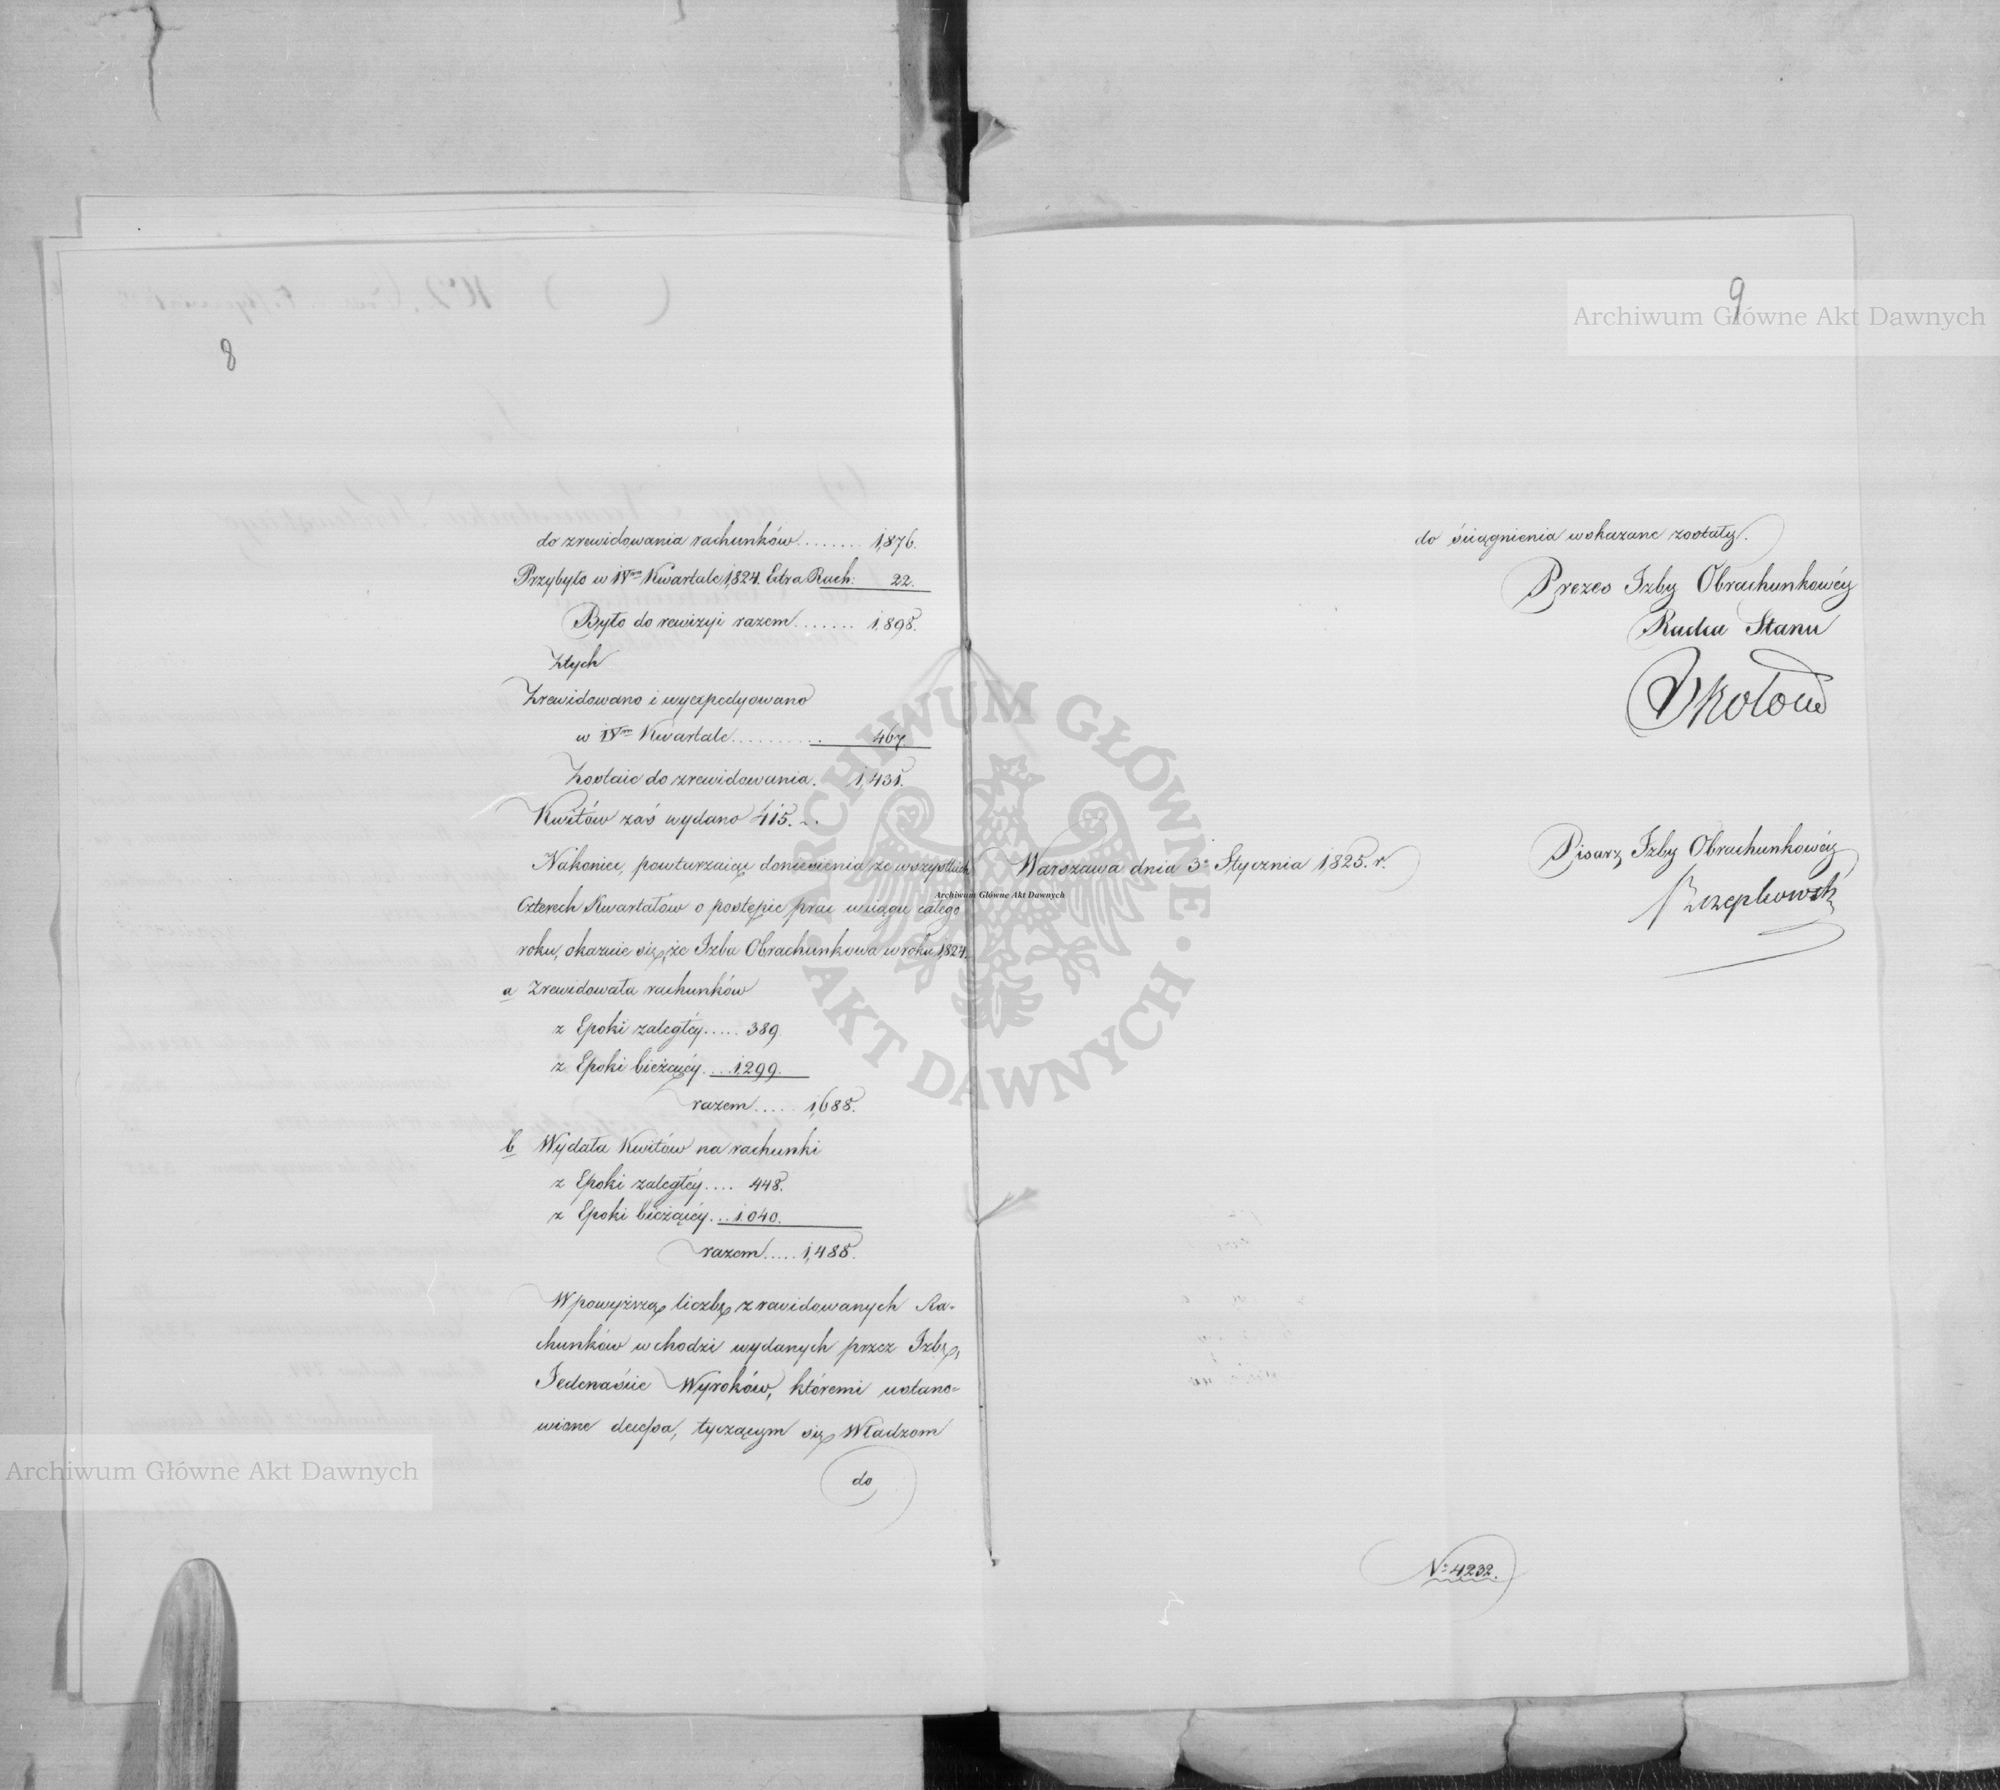 8
do zrewidowania rachunków........ 1,876.
Przybyło w IVm Kwartale 1,824. Extra Rach: 22.
Było do rewizyi razem....... 1,898.
Ztych
Zrewidowano i wyexpedyowano
w IVm Kwartale.......... 467.
Zostaie do zrewidowania. 1,431.
Kwitów zaś wydano 415.
Nakoniec, powtarzaiąc doniesienia ze wszystkich
Czterech Kwartałów o postępie prac w ciągu całego
roku, okazuie się, że Izba Obrachunkowa w roku 1,824.
a Zrewidowała rachunków
z Epoki zaległéy..... 389.
z Epoki bieżącéy.... 1,299.
razem..... 1,688.
b Wydała Kwitów na rachunki
z Epoki zaległéy.... 448.
z Epoki bieżącéy... 1,040.
razem..... 1,488.
W powyższą liczbę zrewidowanych Ra-
chunków wchodzi wydanych przez Izbę,
Jedenaście Wyroków, któremi ustano-
wione defessa, tyczącym się Władzom
do
9
do ściągnienia wskazane zostały.
Prezes Izby Obrachunkowéy
Radca Stanu
Warszawa dnia 3o Stycznia 1,825. r.
Pisarz Izby Obrachunkowéy
No 4232.
Archiwum Główne Akt Dawnych
Archiwum Główne Akt Dawnych
Archiwum Główne Akt Dawnych
ARCHIWUM GŁÓWNE
AKT DAWNYCH